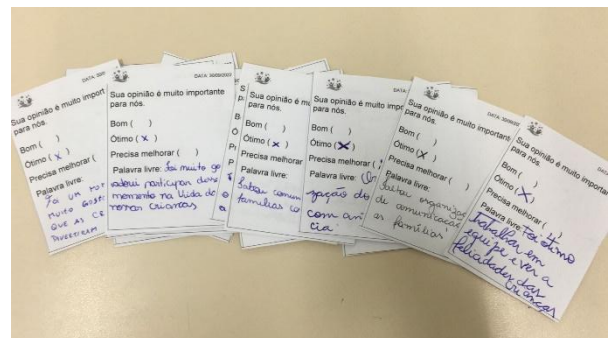 Sua opinião é muito import
para nós.
Bom ( )
Ótimo ( x )
Precisa melhorar (
Palavra livre:
Foi um
muito
QUE AS CR
DIVERTIRAM
DATA: 30/09/202
Sua opinião é muito importante
para nós.
Bom ( )
Ótimo ( x )
Precisa melhorar ( )
Palavra livre: Foi muito go
adorei participar desse
momento na vida de
nossas crianças
Sua opinião é m
para nós.
Bom ( )
Ótimo ( x )
Precisa melhorar
Palavra livre:
famílias co
DATA:
Sua opinião é muito impo
para nós.
Bom ( )
Ótimo ( X )
Precisa melhorar (
Palavra livre:
do
com
cia
DATA
Sua opinião é muito important
para nós.
Bom ( )
Ótimo ( X )
Precisa melhorar (
Palavra livre:
organizaç
de comunicação
as famílias
DATA:
Sua opinião é muito importan
para nós.
Bom ( )
Ótimo ( X )
Precisa melhorar ( )
Palavra livre: Foi ótimo
Trabalhar em
equipe e ver a
felicidades das
crianças